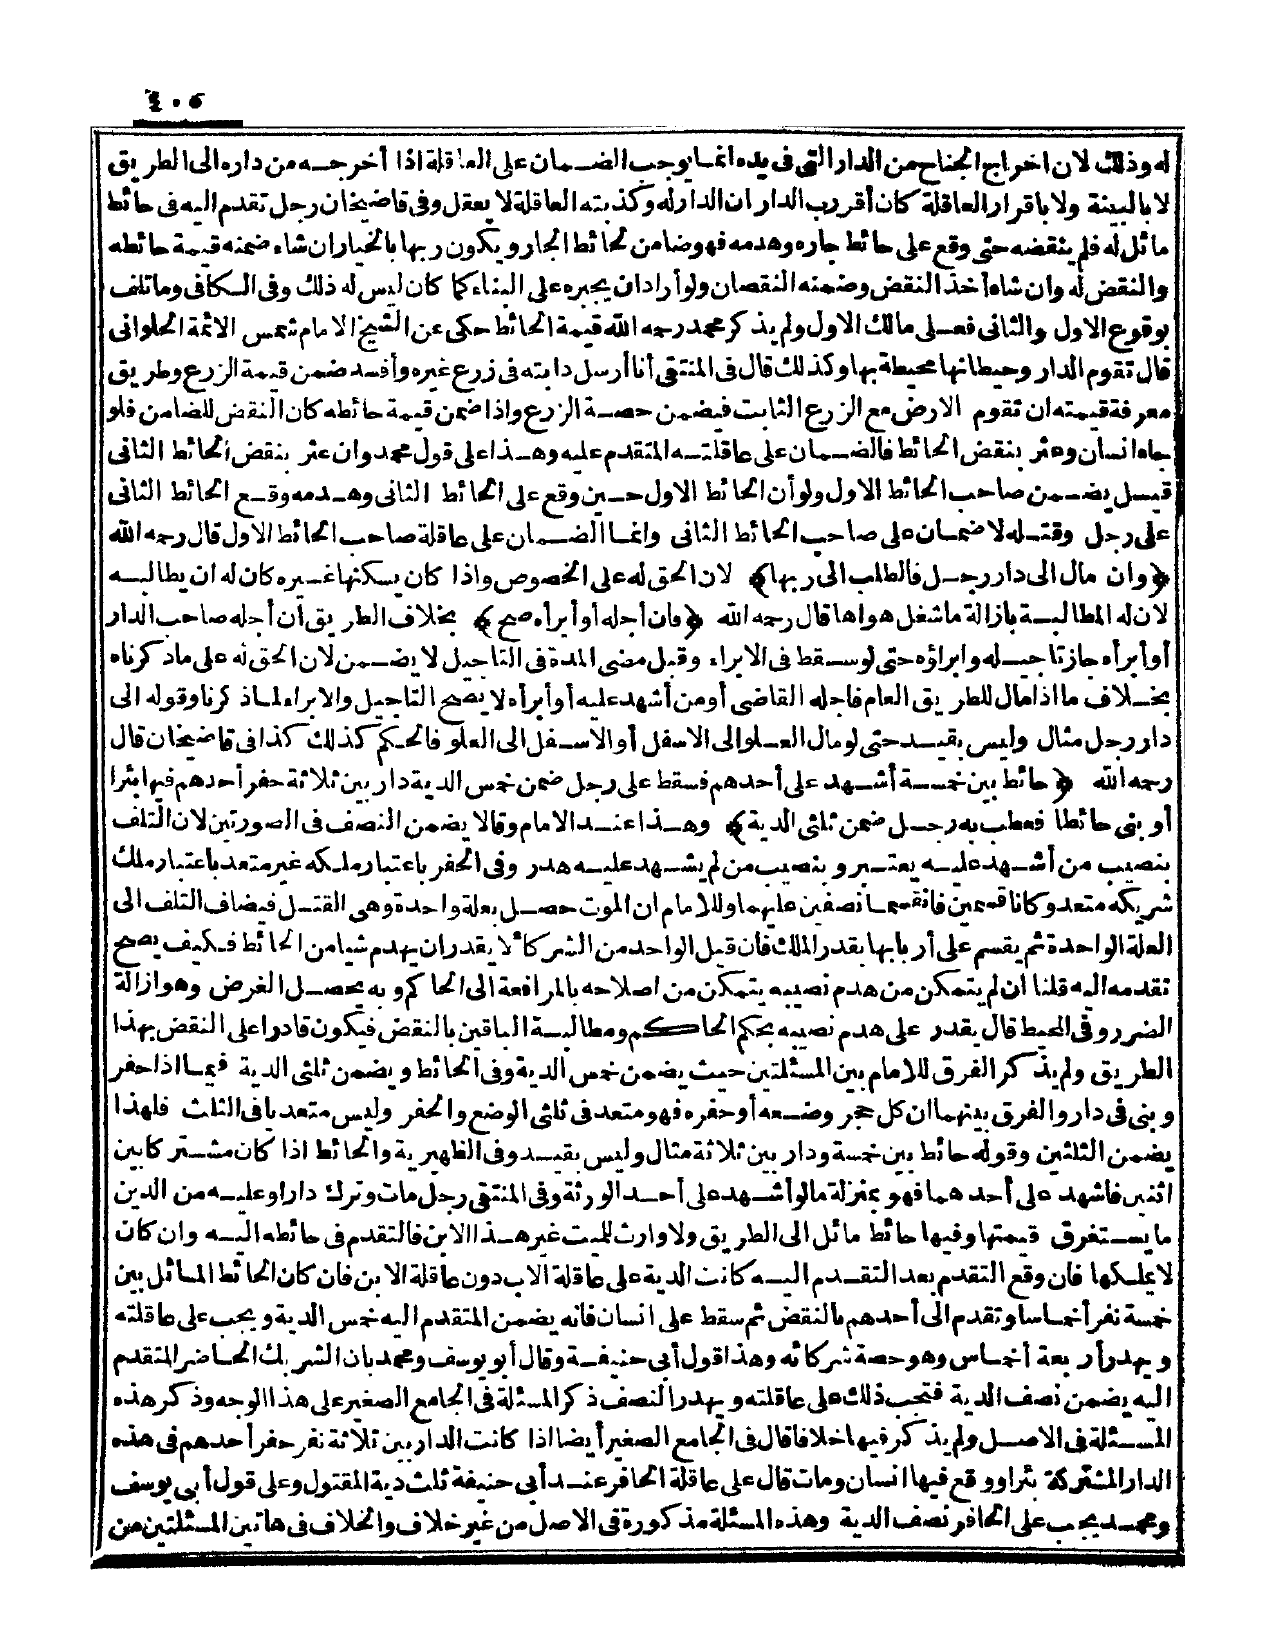 ٤٠٥
له وذلك لان اخراج الجناح من الدار التى فى يده انما يوجب الضمان على العاقلة اذا أخرجه من داره الى الطريق
لا بالبينة ولا باقرار العاقلة كان أقر رب الدار ان الدار له وكذبته العاقلة لا يعقل وفى قاضيخان رجل تقدم اليه فى حائط
مائل له فلم ينقضه حتى وقع على حائط جاره وهدمه فهو ضامن لحائط الجار ويكون ربها بالخيار ان شاء ضمنه قيمة حائطه
والنقض له وان شاء أخذ النقض وضمنه النقصان ولو أراد ان يجبره على البناء كما كان ليس له ذلك وفى الكافى وما تلف
بوقوع الاول والثانى فعلى مالك الاول ولم يذكر محمد رحمه الله قيمة الحائط حكى عن الشيخ الامام شمس الائمة الحلوانى
قال تقوم الدار وحيطانها محيطة بها وكذلك قال فى المنتقى أنا أرسل دابته فى زرع غيره وأفسد ضمن قيمة الزرع وطريق
معرفة قيمته ان تقوم الارض مع الزرع الثابت فيضمن حصة الزرع واذا ضمن قيمة حائطه كان النقض للضامن فلو
جاء انسان وعثر بنقض الحائط فالضمان على عاقلته المتقدم عليه وهذا على قول محمد وان عثر بنقض الحائط الثانى
قيل يضمن صاحب الحائط الاول ولو أن الحائط الاول حين وقع على الحائط الثانى وهدمه وقع الحائط الثانى
على رجل وقتله لا ضمان على صاحب الحائط الثانى وانما الضمان على عاقلة صاحب الحائط الاول قال رحمه الله
﴿وان مال الى دار رجل فالطلب الى ربها﴾ لان الحق له على الخصوص واذا كان يسكنها غيره كان له ان يطالبه
لان له المطالبة بازالة ما شغل هواها قال رحمه الله ﴿فان أجله أو أبرأه صح﴾ بخلاف الطريق أن أجله صاحب الدار
أو أبرأه جاز تاجيله وابراؤه حتى لو سقط فى الابراء وقبل مضى المدة فى التاجيل لا يضمن لان الحق له على ما ذكرناه
بخلاف ما اذا مال للطريق العام فاجله القاضى أو من أشهد عليه أو أبرأه لا يصح التاجيل والابراء لما ذكرنا وقوله الى
دار رجل مثال وليس بقيد حتى لو مال العلو الى الاسفل أو الاسفل الى العلو فالحكم كذلك كذا فى قاضيخان قال
رحمه الله ﴿حائط بين خمسة أشهد على أحدهم فسقط على رجل ضمن خمس الدية دار بين ثلاثة حفر أحدهم فيها بئرا
أو بنى حائطا فعطب به رجل ضمن ثلثى الدية﴾ وهذا عند الامام وقالا يضمن النصف فى الصورتين لان التلف
بنصيب من أشهد عليه يعتبر وبنصيب من لم يشهد عليه هدر وفى الحفر باعتبار ملكه غير متعد باعتبار ملك
شريكه متعد وكانا قسمين فانقسما نصفين عليهما وللامام ان الموت حصل بعلة واحدة وهى القتل فيضاف التلف الى
العلة الواحدة ثم يقسم على أربابها بقدر الملك فان قيل الواحد من الشركاء لا يقدر ان يهدم شيا من الحائط فكيف يصح
تقدمه اليه قلنا ان لم يتمكن من هدم نصيبه يتمكن من اصلاحه بالمرافعة الى الحاكم وبه يحصل الغرض وهو ازالة
الضرر وفى المحيط قال يقدر على هدم نصيبه بحكم الحاكم ومطالبة الباقين بالنقض فيكون قادرا على النقض بهذا
الطريق ولم يذكر الفرق للامام بين المسئلتين حيث يضمن خمس الدية وفى الحائط ويضمن ثلثى الدية فيما اذا حفر
وبنى فى دار والفرق بينهما ان كل حجر وضعه أو حفره فهو متعد فى ثلثى الوضع والحفر وليس متعد باقى الثلث فلهذا
يضمن الثلثين وقوله حائط بين خمسة ودار بين ثلاثة مثال وليس بقيد وفى الظهيرية والحائط اذا كان مشتركا بين
اثنين فاشهد على أحدهما فهو بمنزلة ما لو أشهد على أحد الورثة وفى المنتقى رجل مات وترك دارا وعليه من الدين
ما يستغرق قيمتها وفيها حائط مائل الى الطريق ولا وارث للميت غير هذا الابن فالتقدم فى حائطه اليه وان كان
لا يملكها فان وقع التقدم بعد التقدم اليه كانت الدية على عاقلة الاب دون عاقلة الابن فان كان الحائط المائل بين
خمسة نفر أخماسا وتقدم الى أحدهم بالنقض ثم سقط على انسان فانه يضمن المتقدم اليه خمس الدية ويجب على عاقلته
ويهدر أربعة أخماس وهو حصة شركائه وهذا قول أبى حنيفة وقال أبو يوسف ومحمد بان الشريك الحاضر المتقدم
اليه يضمن نصف الدية فتجب ذلك على عاقلته ويهدر النصف ذكر المسئلة فى الجامع الصغير على هذا الوجه وذكر هذه
المسئلة فى الاصل ولم يذكر فيها خلافا قال فى الجامع الصغير أيضا اذا كانت الدار بين ثلاثة نفر حفر أحدهم فى هذه
الدار المشتركة بئرا ووقع فيها انسان ومات قال على عاقلة الحافر عند أبى حنيفة ثلث دية المقتول وعلى قول أبى يوسف
ومحمد يجب على الحافر نصف الدية وهذه المسئلة مذكورة فى الاصل من غير خلاف والخلاف فى هاتين المسئلتين من